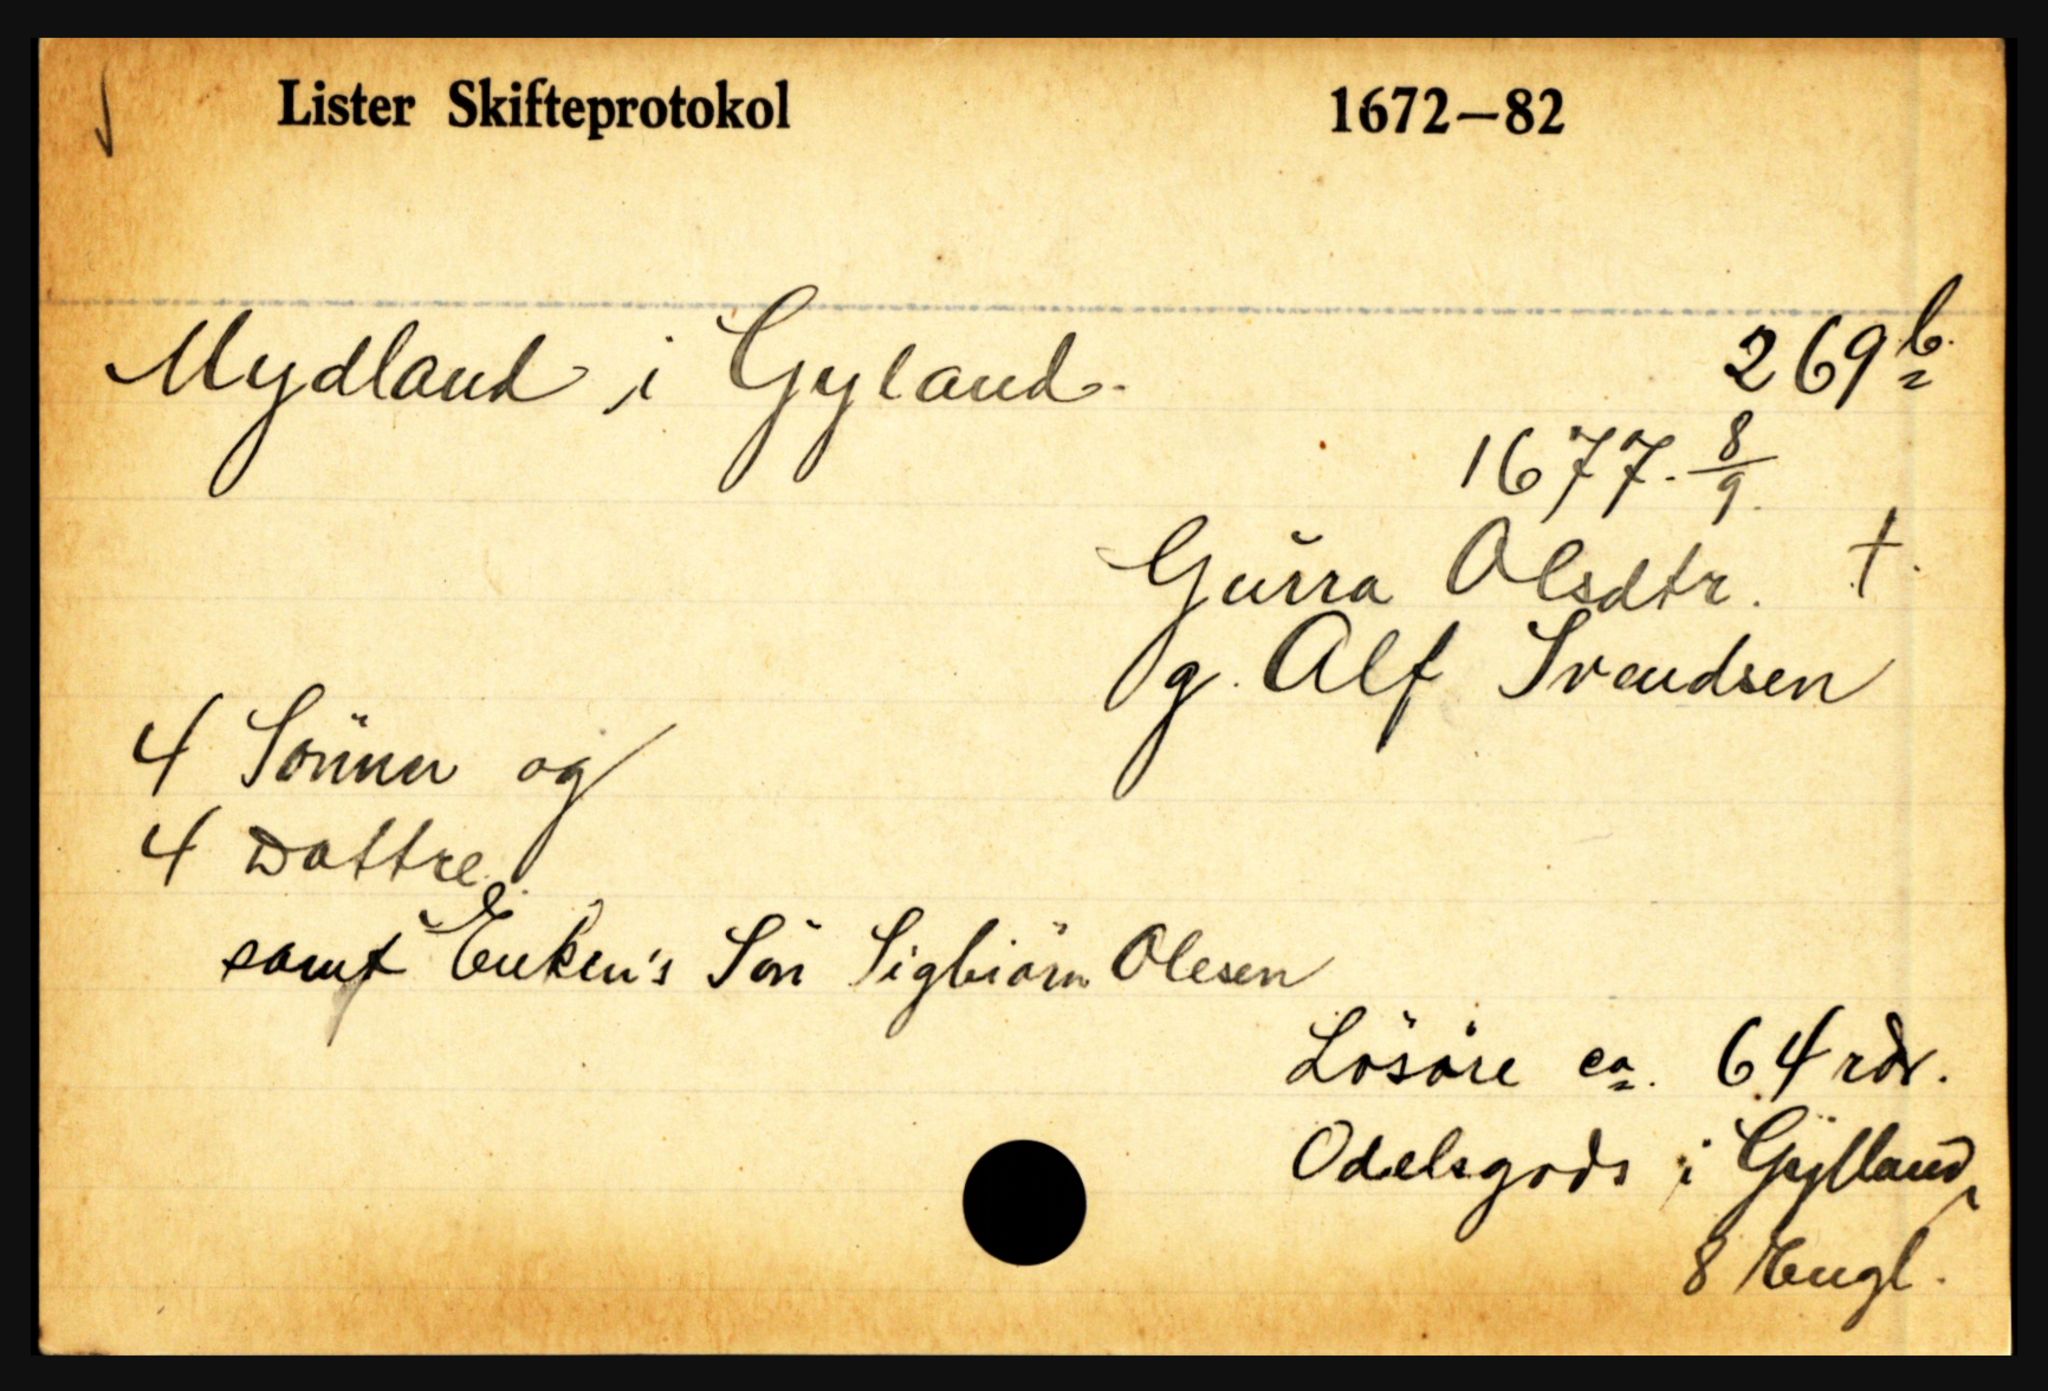 Lister Skifteprotokol 1672–82
Mydland i Gyland. 269 b.
1677. 8/9.
Gurra Olsdtr. †.
g. Alf Svendsen
4 Sönner og
4 Dattre.
samt Enken's Sön Sigbiörn Olesen
Lösöre ca. 64 rdr.
Odelsgods i Gylland,
8 Engl.